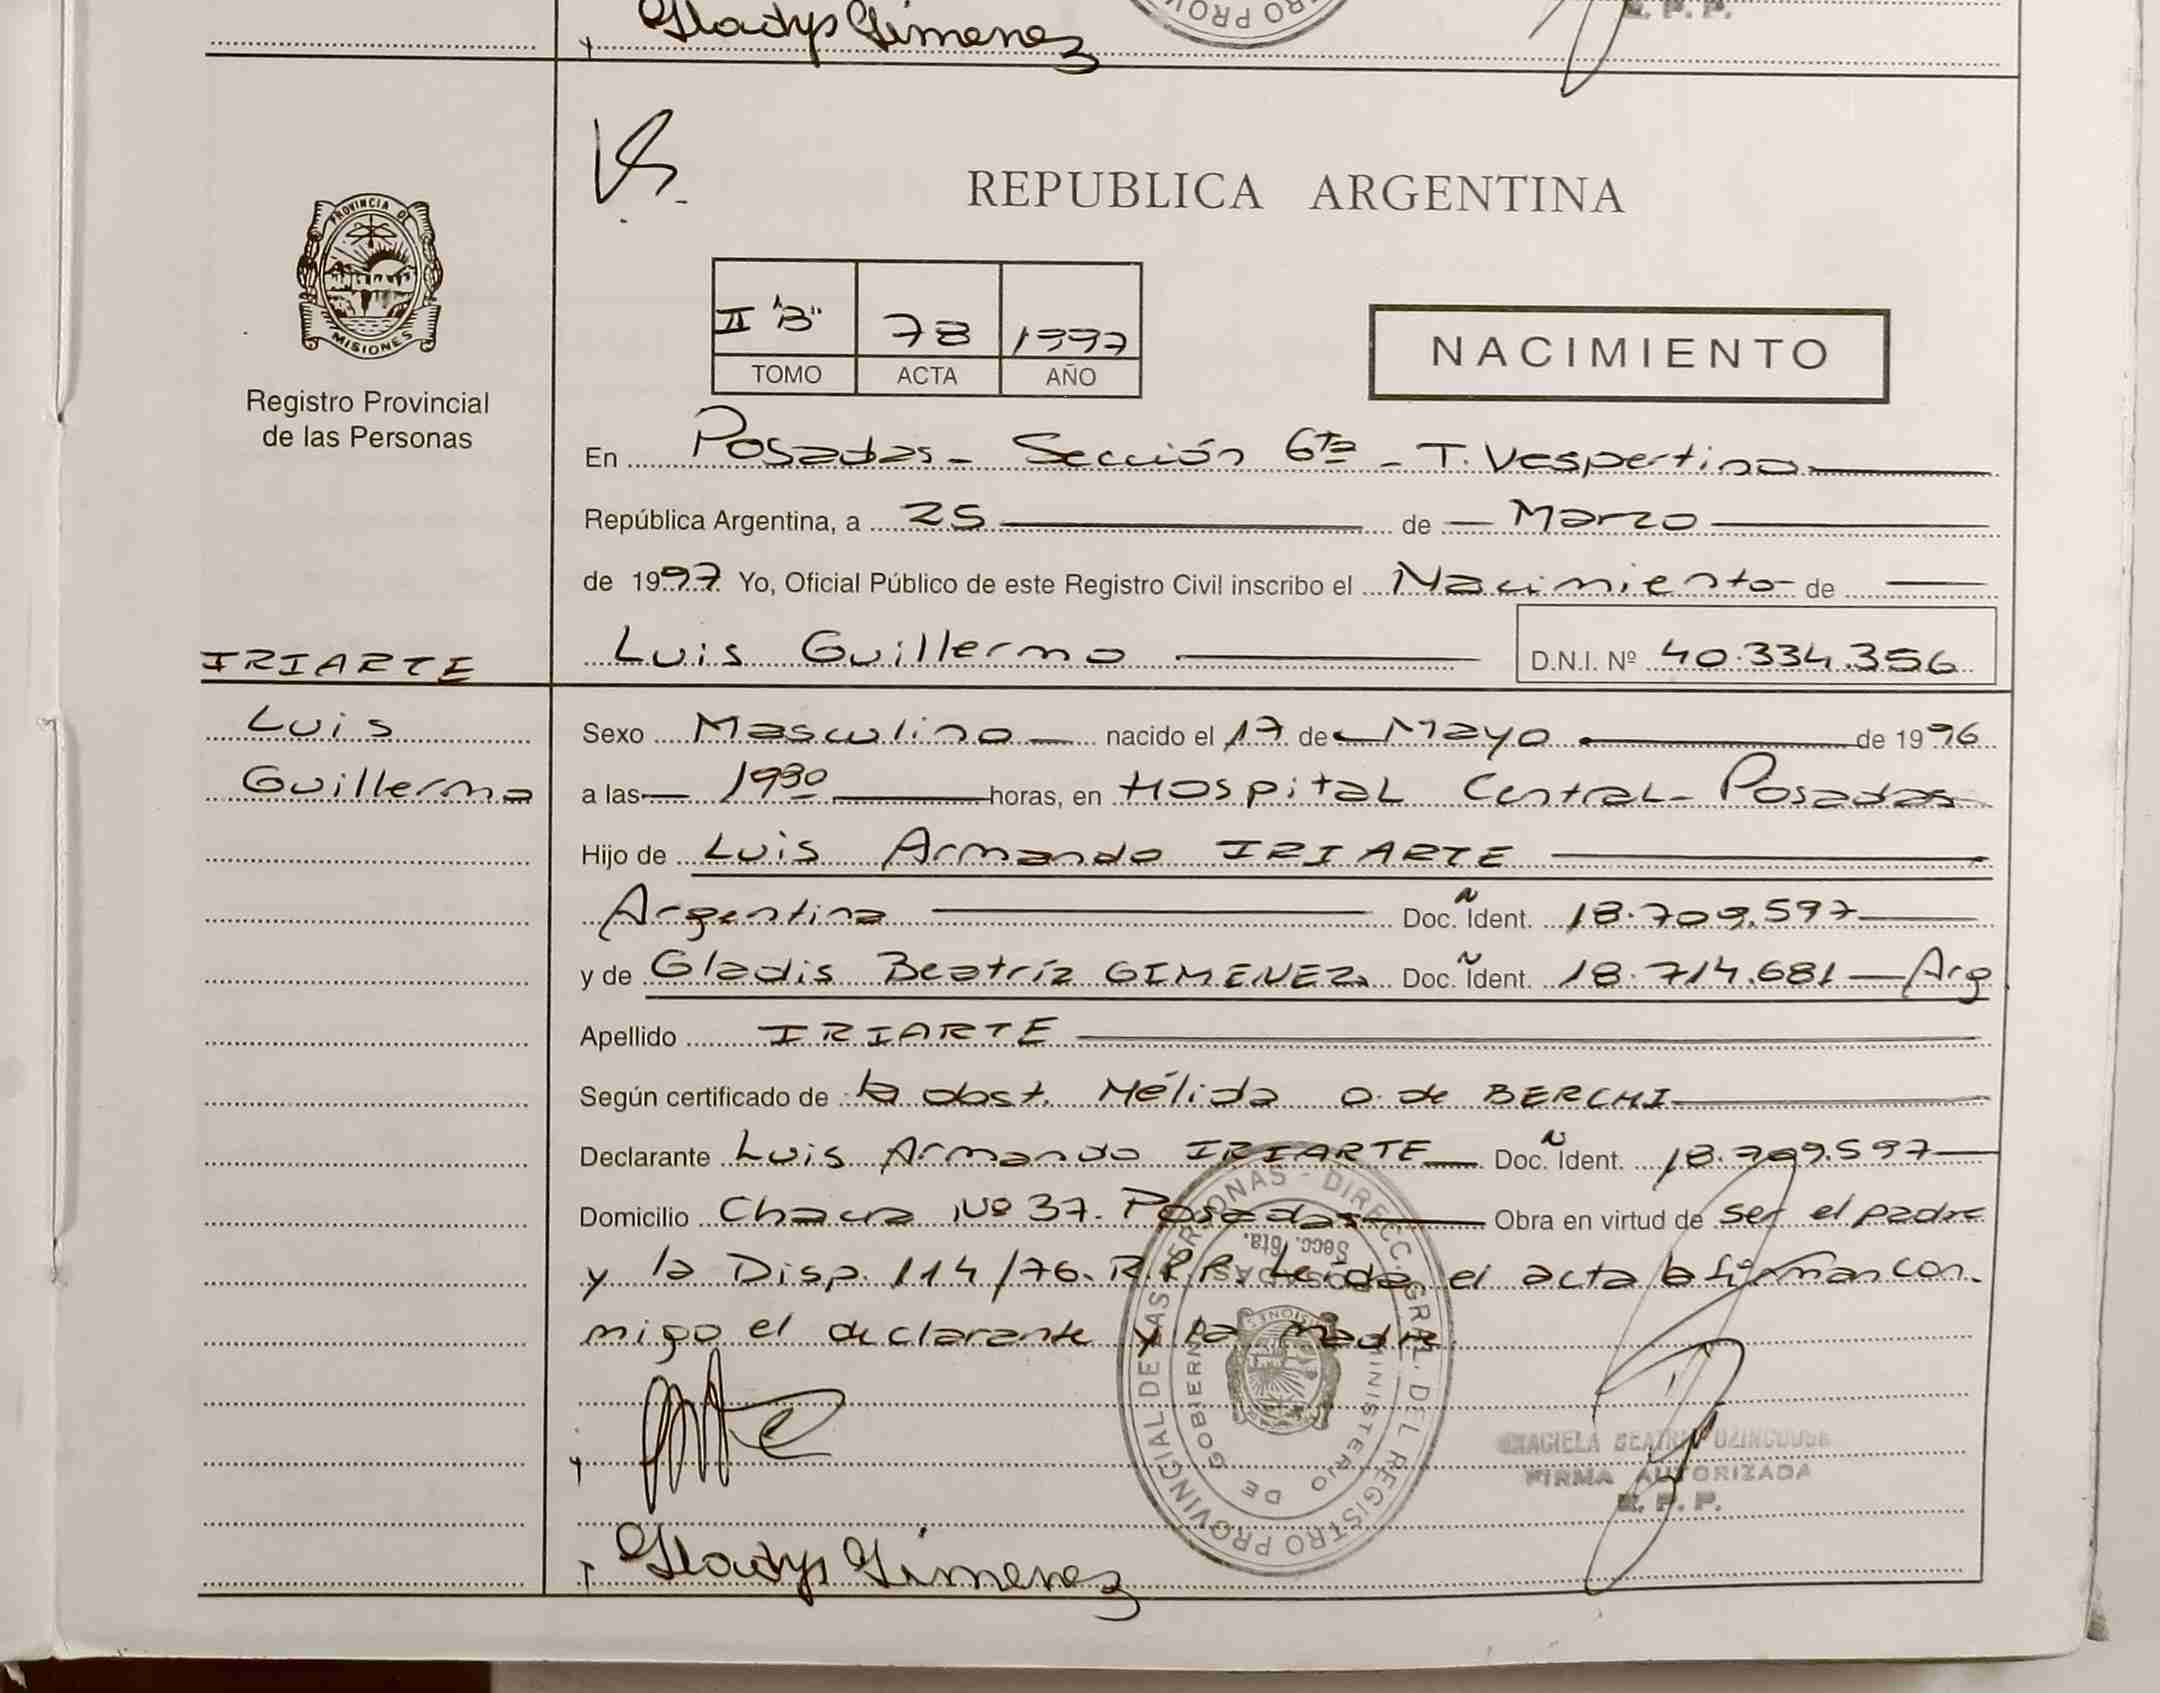 Gladys Gimenez
R. P. P.
PROVINCIA DE
MISIONES
Registro Provincial
de las Personas
REPUBLICA ARGENTINA
II "B" 78 1997
TOMO ACTA AÑO
NACIMIENTO
En Posadas - Sección 6ta - T. Vespertino
República Argentina, a 25 de Marzo
de 1997 Yo, Oficial Público de este Registro Civil inscribo el Nacimiento de
IRIARTE
Luis Guillermo D.N.I. Nº 40.334.356
Luis
Guillermo
Sexo Masculino nacido el 17 de Mayo de 1996
a las 1930 horas, en Hospital Central - Posadas
Hijo de Luis Armando IRIARTE
Argentina Doc. Ñ Ident. 18.709.597
y de Gladis Beatríz GIMENEZ Doc. Ñ Ident. 18.714.681 - Arg
Apellido IRIARTE
Según certificado de la obst. Mélida O. de BERCHI
Declarante Luis Armando IRIARTE Doc. Ñ Ident. 18.709.597
Domicilio Chacra Nº 37. Posadas Obra en virtud de ser el padre
y la Disp. 114/76. R.P.P. Leida el acta la firman con
migo el declarante y la madre.
REGISTRO PROVINCIAL DE LAS PERSONAS - DIRECC. GRAL. DEL
MINISTERIO DE GOBIERNO
POSADAS
Secc. 6ta.
GRACIELA BEATRIZ
FIRMA AUTORIZADA
R. P. P.
Gladys Gimenez